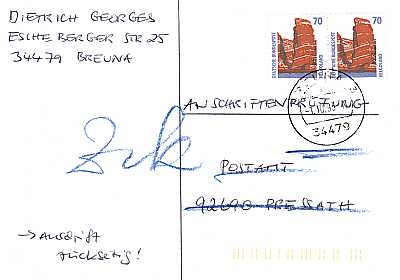 DIETRICH GEORGES
ESCHEBERGER STR 25
34479 BREUNA
70
70
DEUTSCHE BUNDESPOST
HELGOLAND
DEUTSCHE BUNDESPOST
HELGOLAND
34479
ANSCHRIFTENPRÜFUNG
Zurück
POSTAMT
92690 PRESSATH
→ Auschrift
rückseitig!